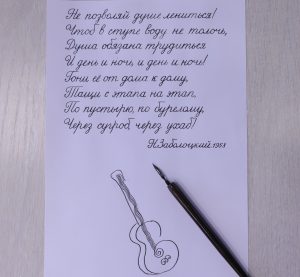 Не позволяй душе лениться!
Чтоб в ступе воду не толочь,
Душа обязана трудиться
И день и ночь, и день и ночь!
Гони её от дома к дому,
Тащи с этапа на этап,
По пустырю, по бурелому,
Через сугроб, через ухаб!
Н.Заболоцкий 1958